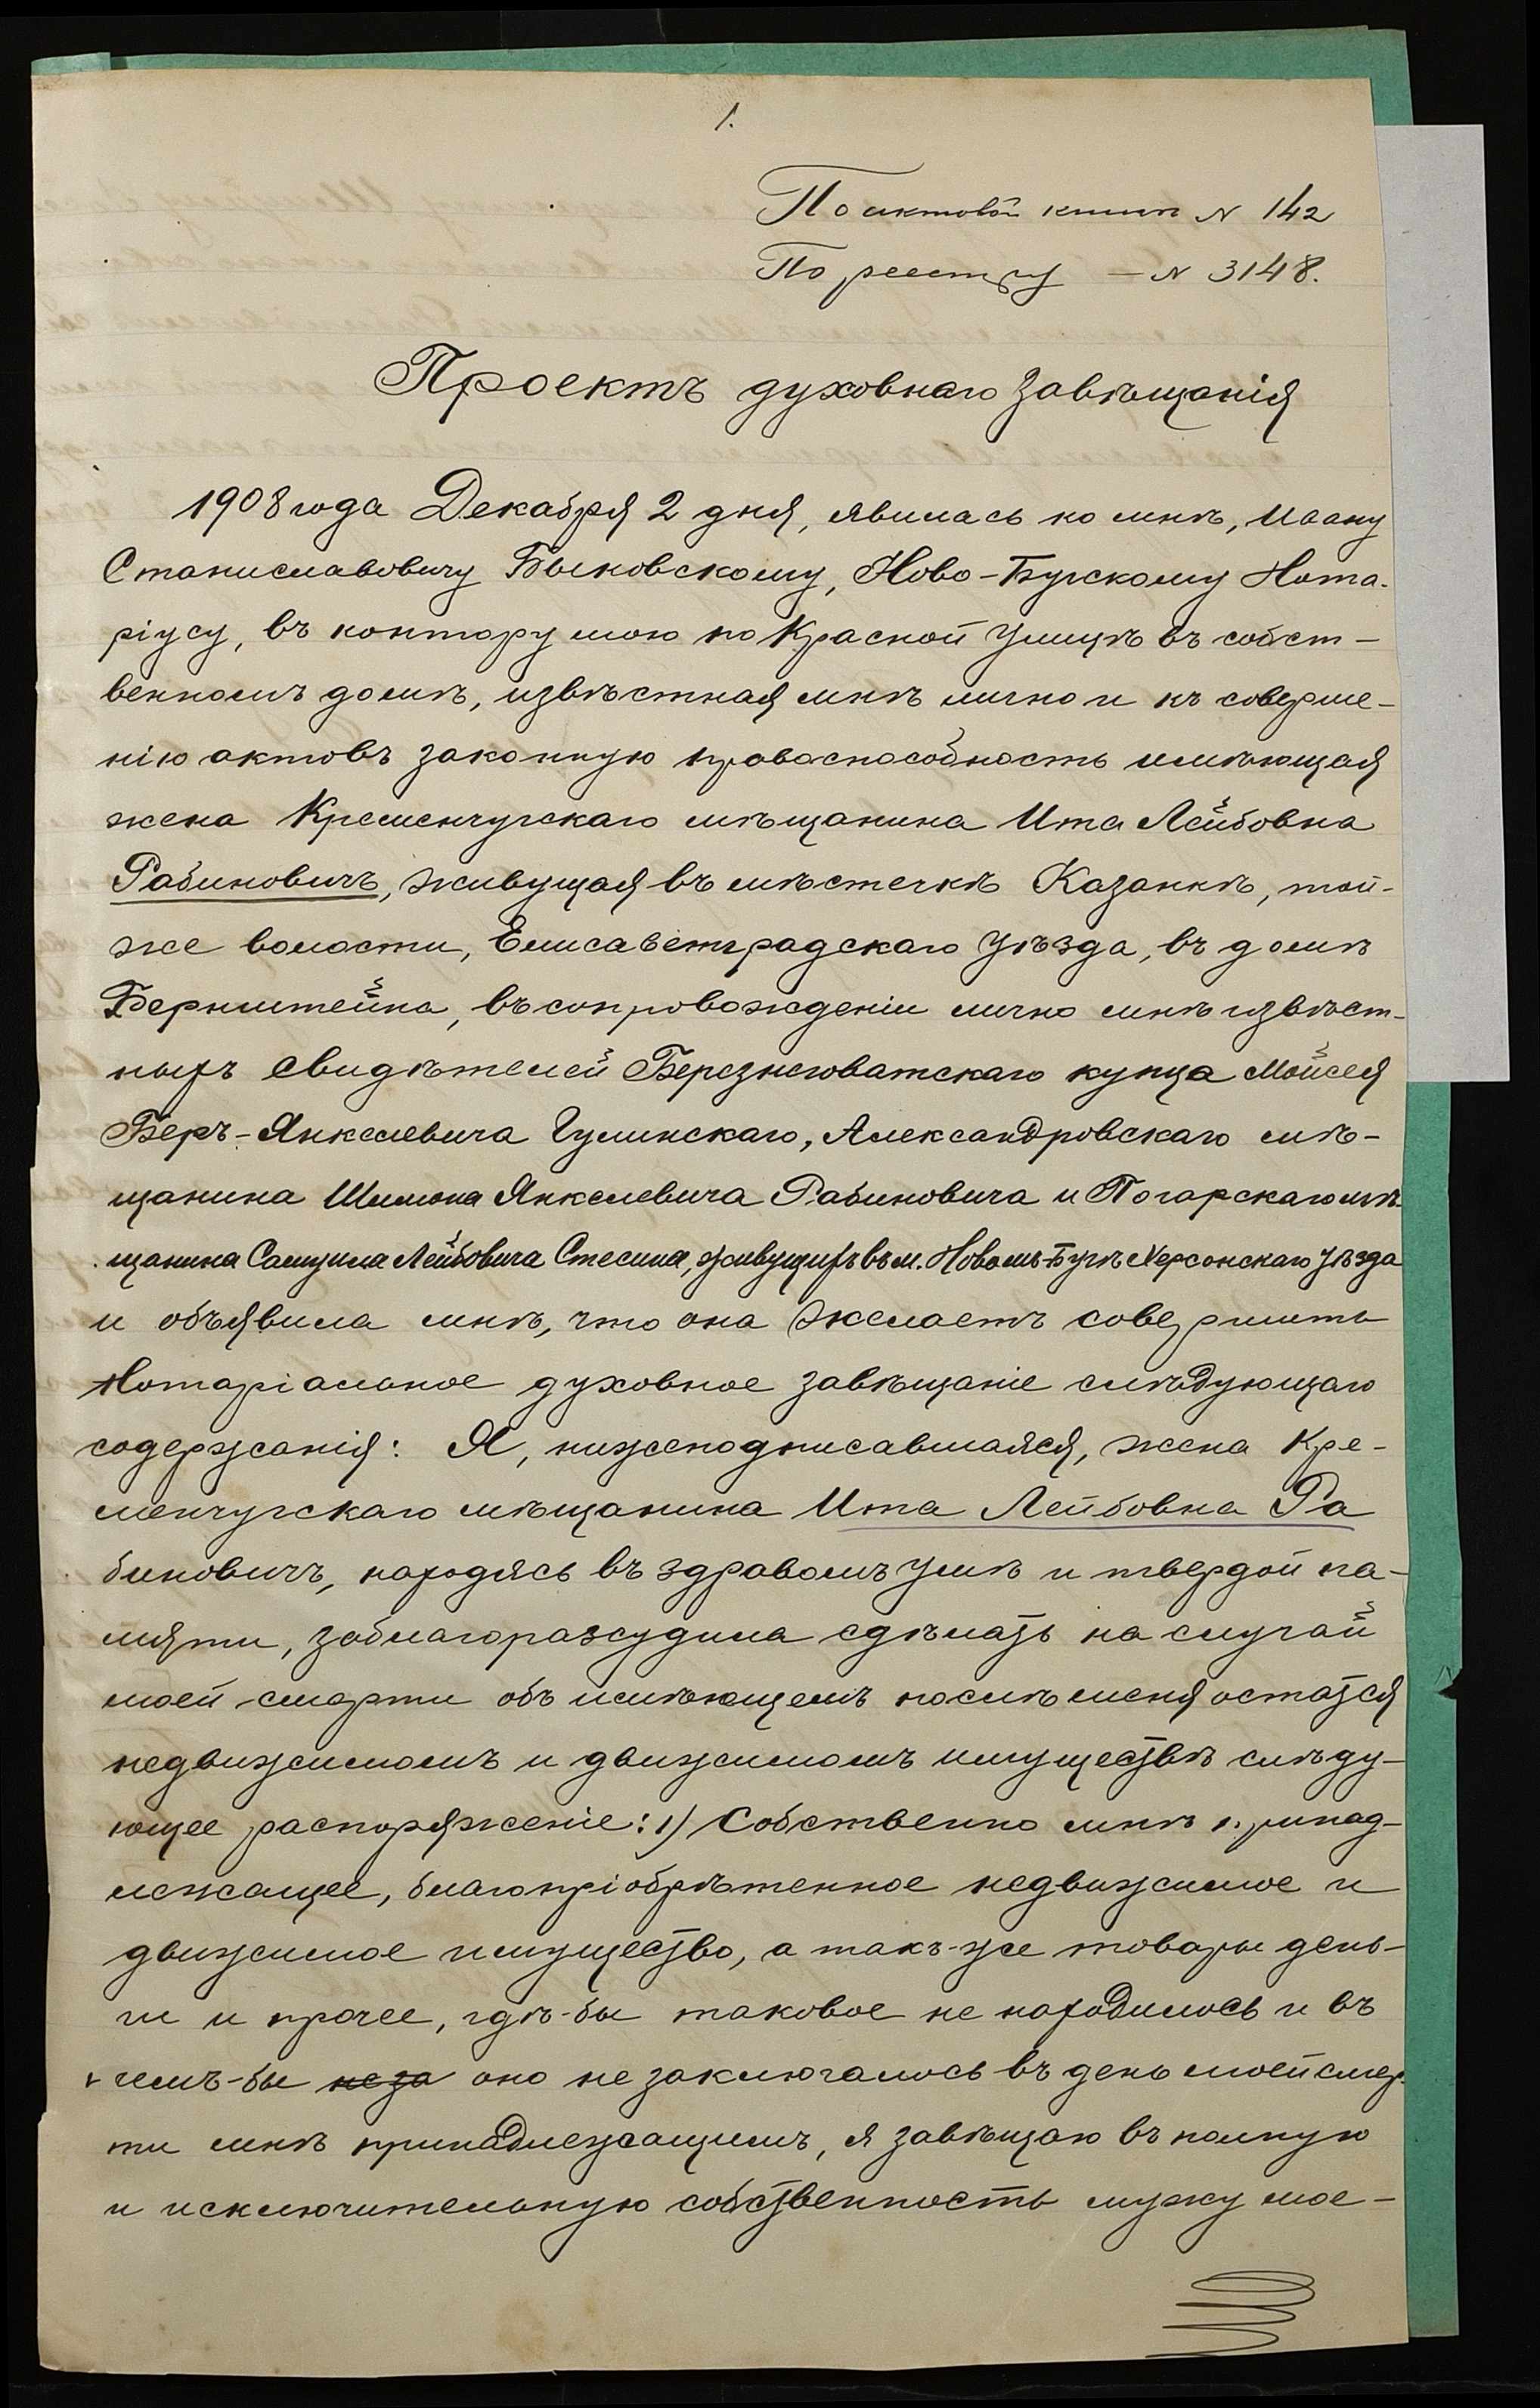 1.
По актовой книгѣ N 142
По реестру — N 3148.
Проектъ духовнаго завѣщанія
1908 года Декабря 2 дня, явилась ко мнѣ, Ивану
Станиславовичу Быковскому, Ново-Бугскому Нота-
ріусу, въ контору мою по Красной улицѣ въ собст-
венномъ домѣ, извѣстная мнѣ лично и къ соверше-
нію актовъ законную правоспособность имѣющая
жена Кременчугскаго мѣщанина Ита Лейбовна
Рабиновичъ, живущая въ мѣстечкѣ Казанкѣ, той-
же волости, Елисаветградскаго уѣзда, въ домѣ
Бернштейна, въ сопровожденіи лично мнѣ извѣст-
ныхъ свидѣтелей Березнеговатскаго купца Мойсея
Беръ-Янкелевича Гулинскаго, Александровскаго мѣ-
щанина Шимона Янкелевича Рабиновича и Погарскаго мѣ-
щанина Самуила Лейбовича Стесина, живущихъ въ м. Новомъ-Бугѣ Херсонскаго уѣзда
и объявила мнѣ, что она желаетъ совершить
нотаріальное духовное завѣщаніе слѣдующаго
содержанія: Я, нижеподписавшаяся, жена Кре-
менчугскаго мѣщанина Ита Лейбовна Ра
биновичъ, находясь въ здравомъ умѣ и твердой па-
мяти, заблагоразсудила сдѣлать на случай
моей смерти объ имѣющемъ послѣ меня остаться
недвижимомъ и движимомъ имуществѣ слѣду-
ющее распоряженіе: 1) Собственно мнѣ принад-
лежащее, благопріобрѣтенное недвижимое и
движимое имущество, а такъ-же товары день-
ги и прочее, гдѣ-бы таковое не находилось и въ
чемъ-бы не за оно не заключалось въ день моей смер-
ти мнѣ принадлежащимъ, я завѣщаю въ полную
и исключительную собственность мужу мое-